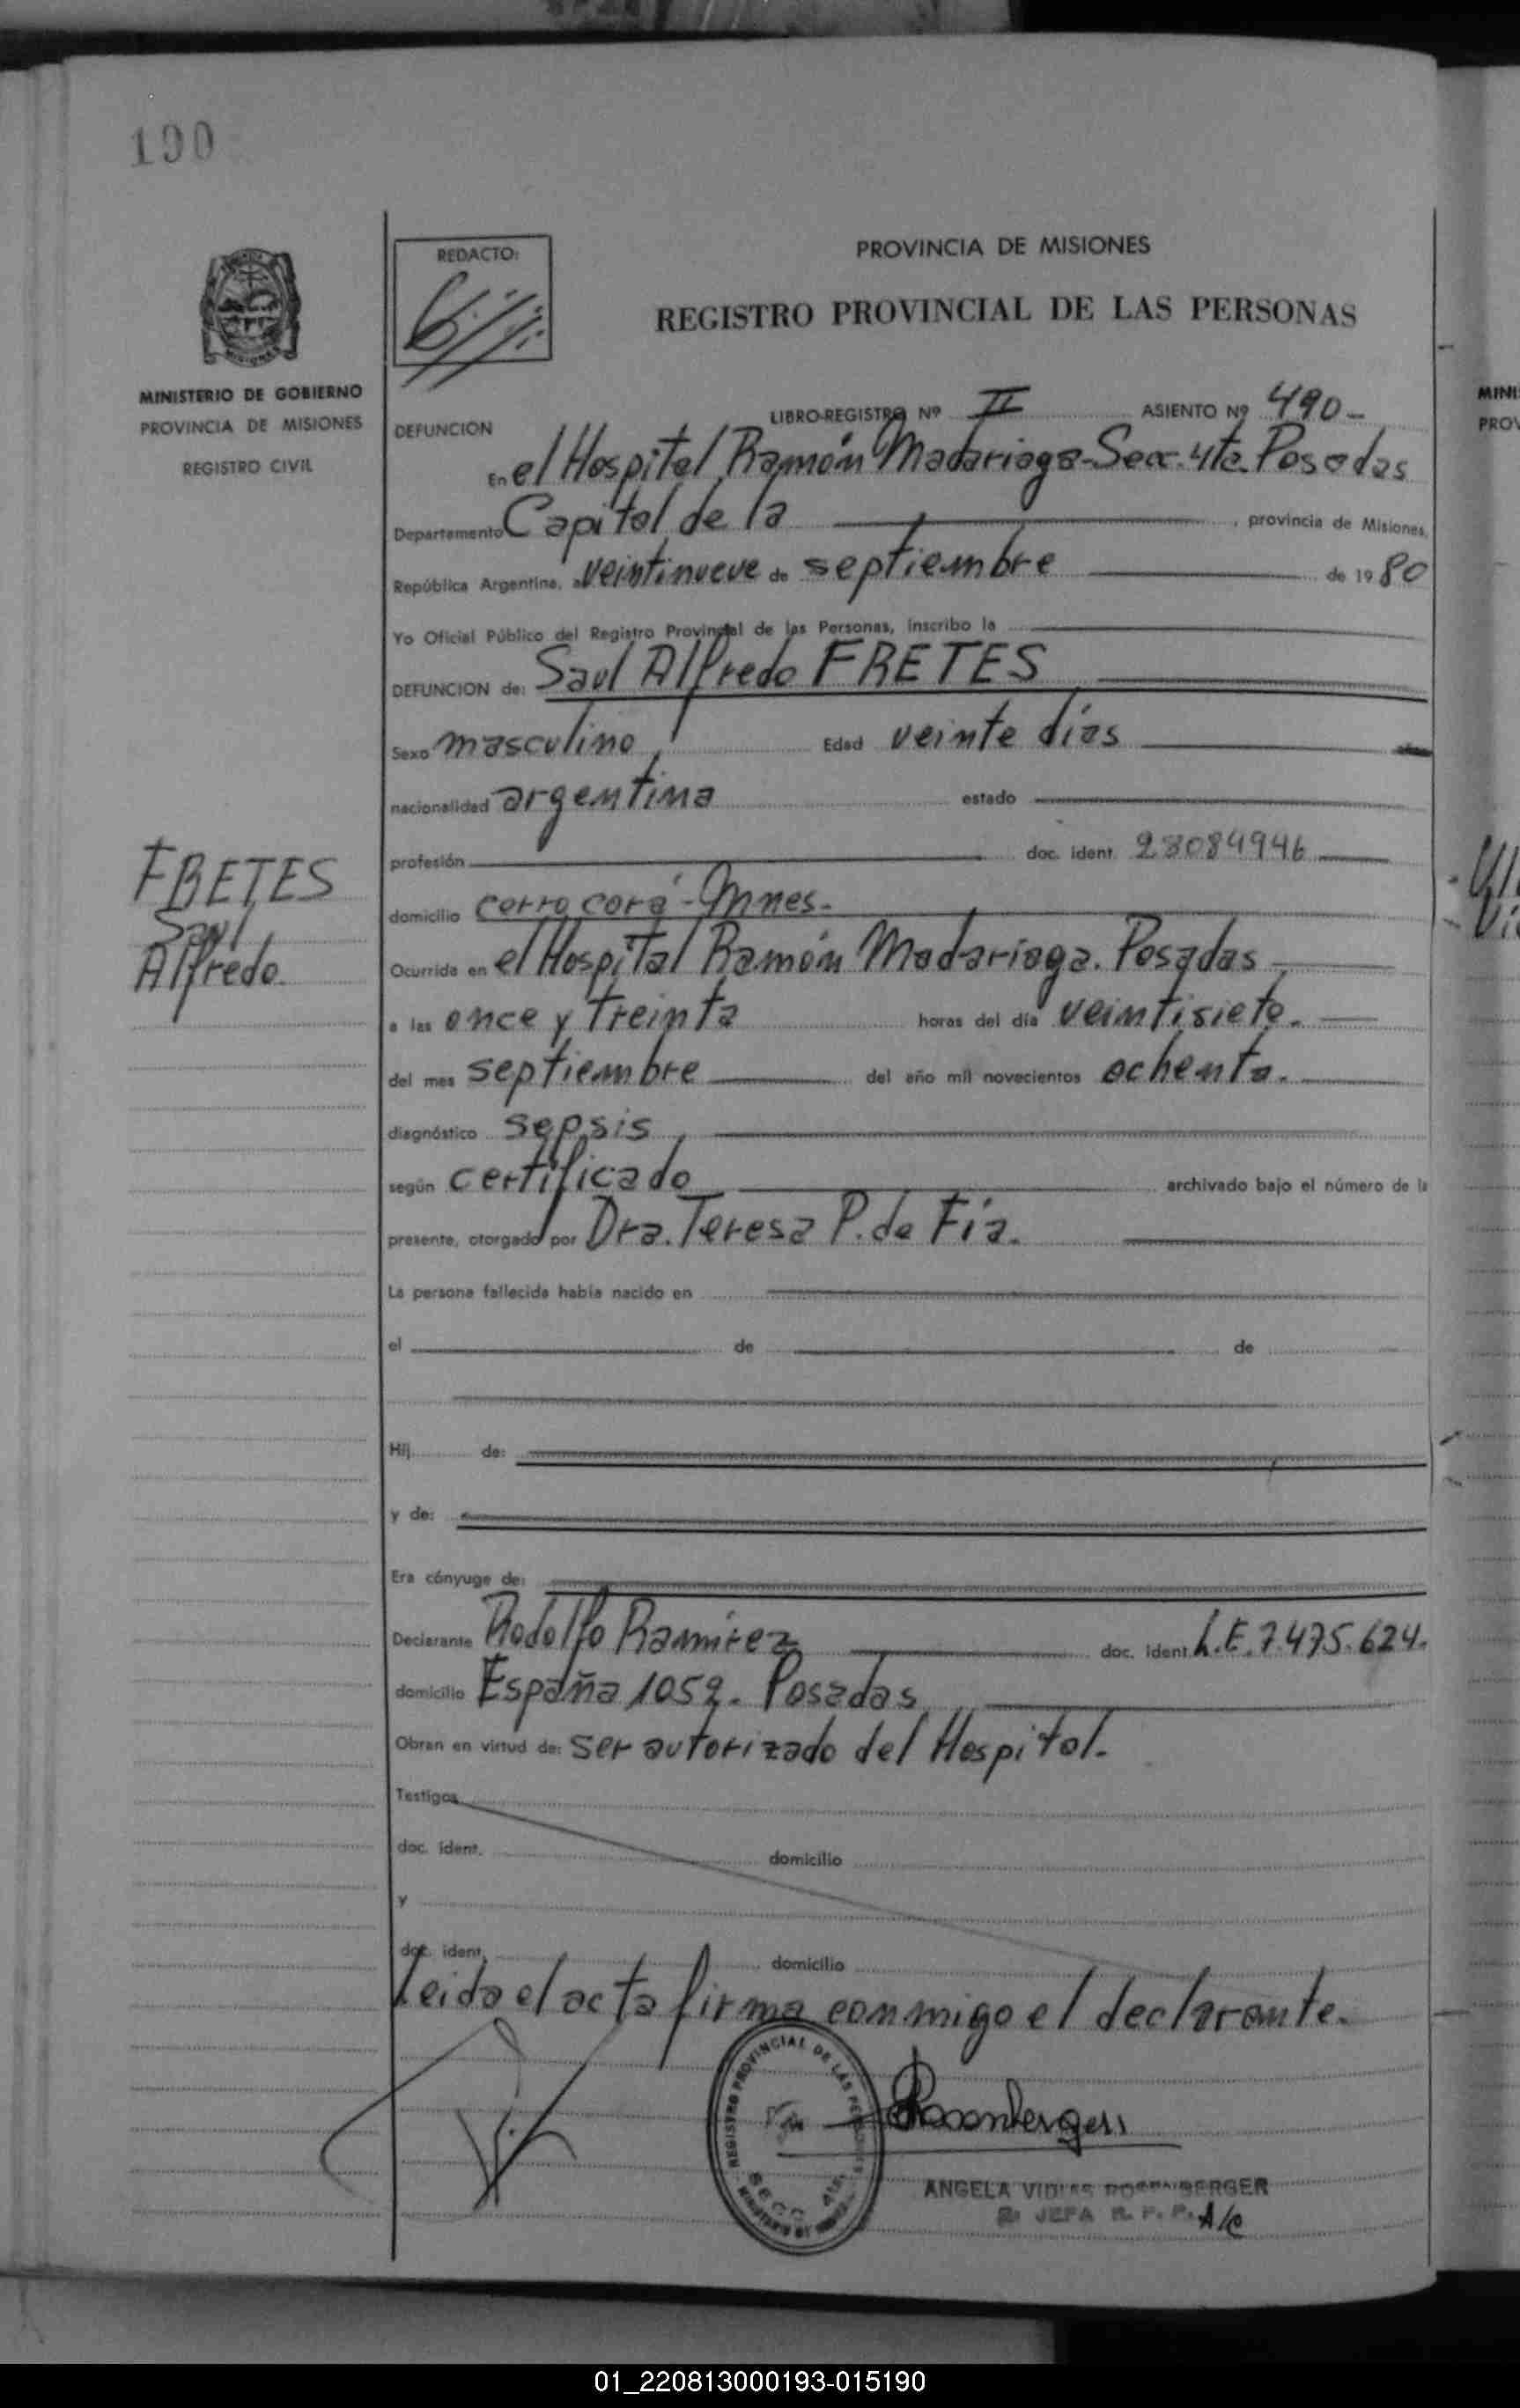 190
REDACTO:
PROVINCIA DE MISIONES
REGISTRO PROVINCIAL DE LAS PERSONAS
MINISTERIO DE GOBIERNO
PROVINCIA DE MISIONES
REGISTRO CIVIL
LIBRO-REGISTRO Nº II ASIENTO Nº 490-
DEFUNCION
En el Hospital Ramón Madariaga-Secc. 4ta. Posadas
Departamento Capital, de la , provincia de Misiones,
República Argentina, a veintinueve de septiembre de 1980
Yo Oficial Público del Registro Provincial de las Personas, inscribo la
DEFUNCION de: Saul Alfredo FRETES
Sexo masculino, Edad veinte días
nacionalidad argentina estado
profesión doc. ident. 28084946
FRETES
Saul
Alfredo
domicilio cerro corá-Mnes.
Ocurrida en el Hospital Ramón Madariaga. Posadas
a las once y treinta horas del día veintisiete.
del mes septiembre del año mil novecientos ochenta.
diagnóstico sepsis,
según certificado archivado bajo el número de la
presente, otorgado por Dra. Teresa P. de Fia.
La persona fallecida había nacido en
el de de
Hij de:
y de:
Era cónyuge de:
Declarante Rodolfo Ramírez doc. ident. L.E. 7.475.624.
domicilio España 1052. Posadas
Obran en virtud de: ser autorizado del Hospital.
Testigos
doc. ident. domicilio
y
doc. ident. domicilio
Leida el acta firma conmigo el declarante.
REGISTRO PROVINCIAL DE LAS PERSONAS
SECC. 4ta.
Rosenberger
ANGELA ROSENBERGER
JEFA R. P. P. A/C
MINI
PROV
01_220813000193-015190